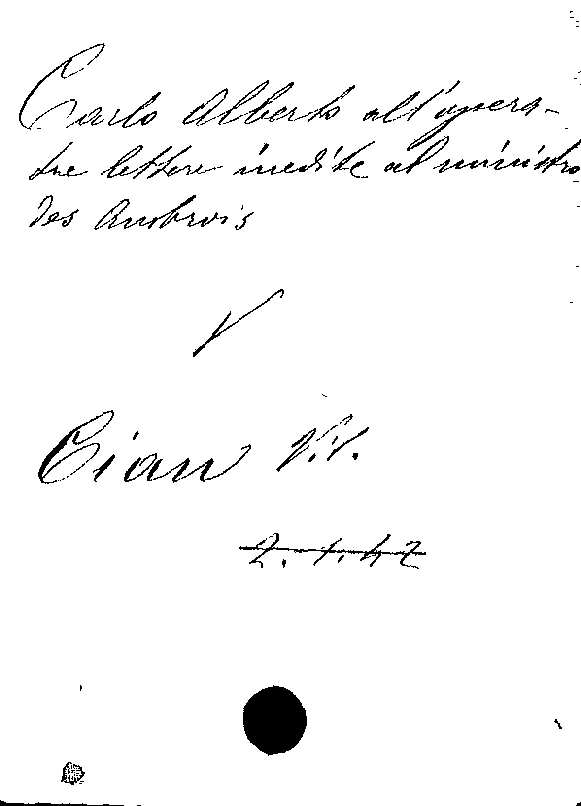 Carlo Alberto all'opera -
tre lettere inedite al ministro
des Ambrois
V
Cian Vit.
2. 1. 42